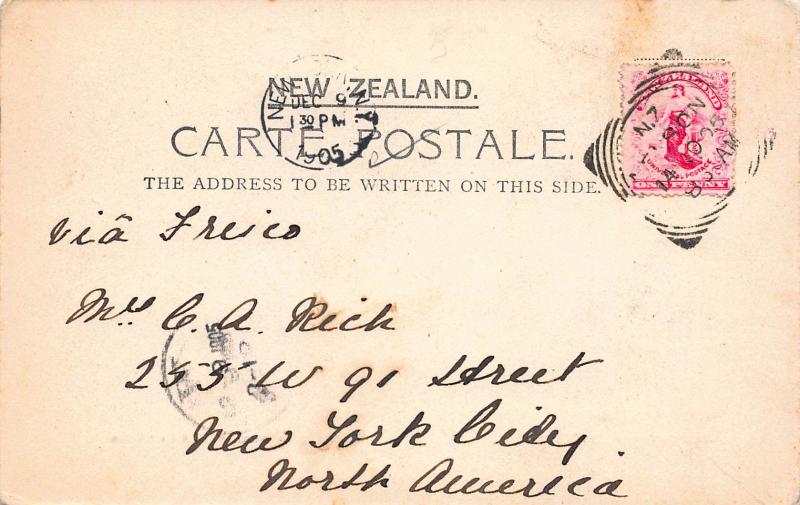 NEW ZEALAND.
CARTE POSTALE.
THE ADDRESS TO BE WRITTEN ON THIS SIDE.
NEW
DEC 9
1 30 PM
1905
N.Z
14
ONE PENNY
UNIVERSAL POSTAGE
viâ Frisco
C. A. Rich
255 W 91 Street
New York City
North America
1905